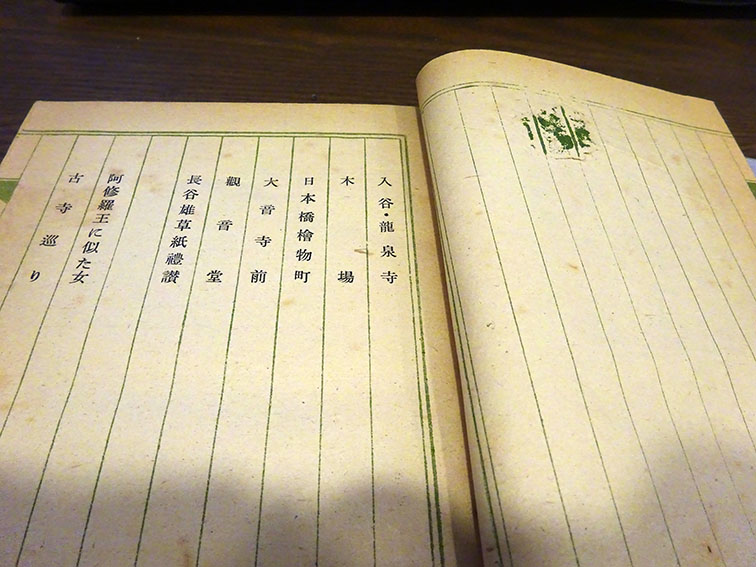 入谷・龍泉寺
木場
日本橋檜物町
大音寺前
觀音堂
長谷雄草紙禮讃
阿修羅王に似た女
古寺巡り